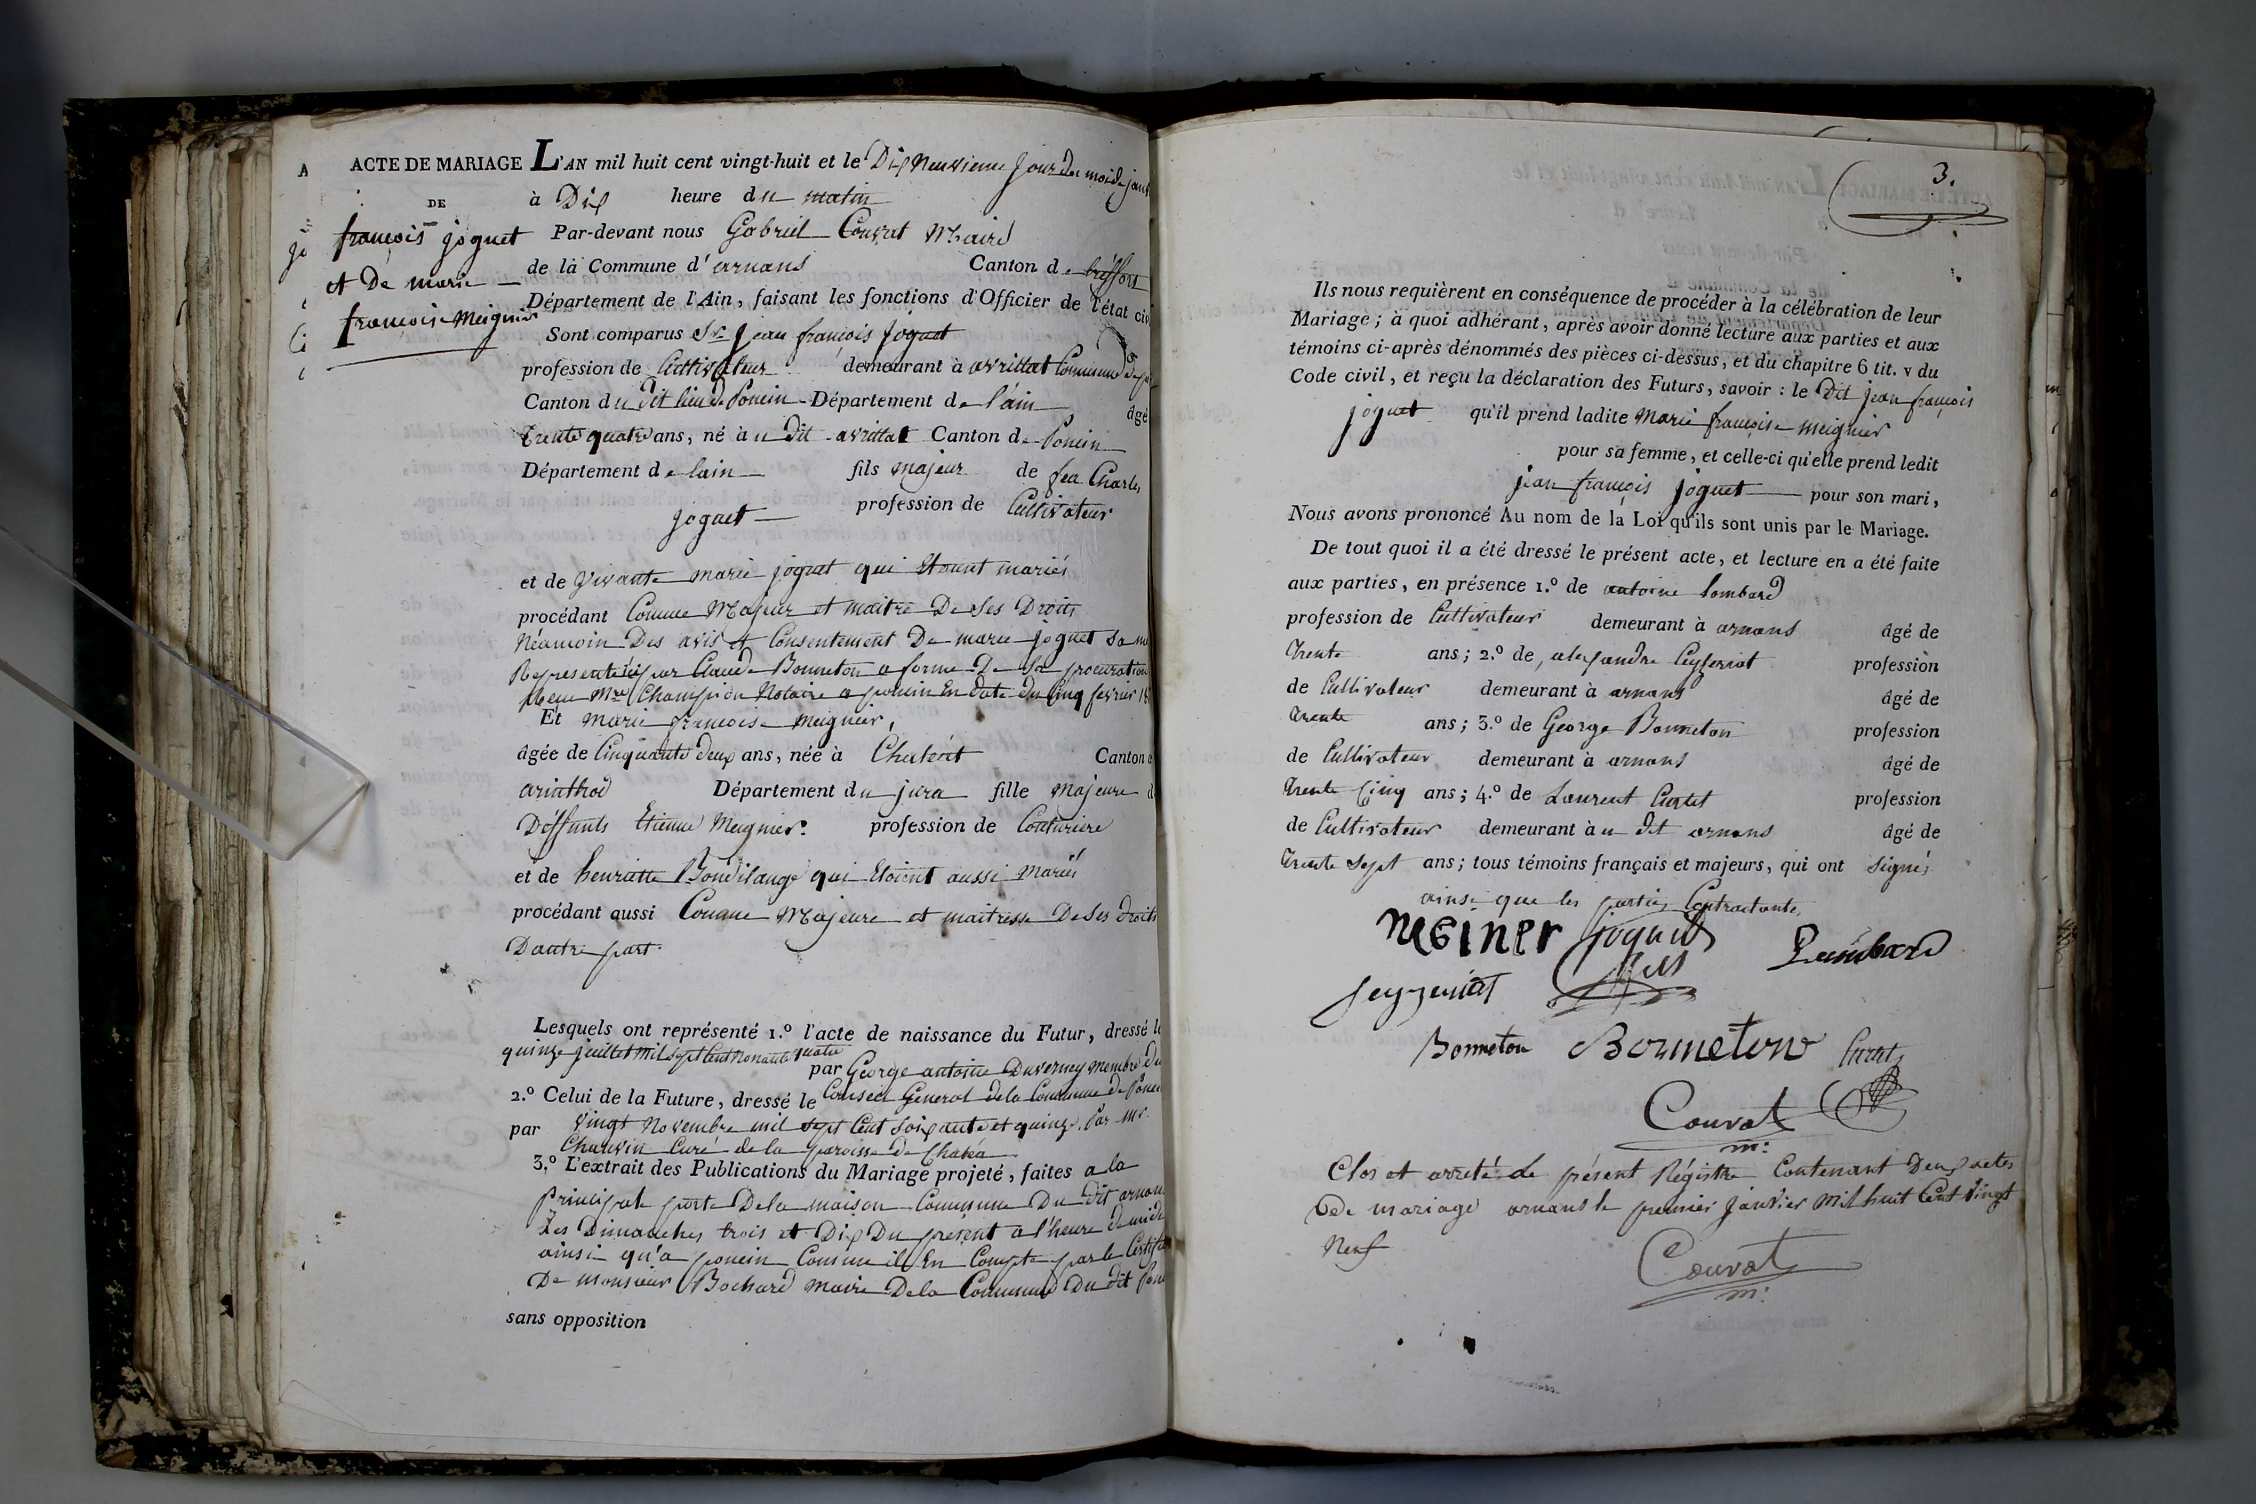 ACTE DE MARIAGE
DE
françois joguet
et De marie
françoise Meignier
L'AN mil huit cent vingt-huit et le Dix Neuvieme Jour du mois de janv
à Dix heure du matin
Par-devant nous Gabriel Couvat Maire
de la Commune d'arnans Canton de treffort
Département de l'Ain, faisant les fonctions d'Officier de l'état civ
Sont comparus Sr. Jean françois Joguet
profession de Cultivateur demeurant à avrillat Commune de
Canton du dit lieu de Poncin Département de l'ain âgé
trente quatre ans, né àu dit avrillat Canton de Poncin
Département de lain fils majeur de feu Charles
joguet profession de Cultivateur
et de vivante marie joguet qui Etoient mariés
procédant Comme Majeur et maitre De Ses Droits
Néamoin Des avis et Consentement De marie joguet sa
Representée par Claude Bonneton a forme De sa procuration
Reçue Mre Champion Notaire a poncin En date du cinq fevrier
Et marie francoise meignier,
âgée de Cinquante deux ans, née à Chatéat Canton
arinthod Département du jura fille Majeure
Deffunts Etienne Meignier. profession de Couturiere
et de henriette Bondilange qui Etoient aussi Mariés
procédant aussi Comme Majeure et maitresse De Ses droits
Dautre part.
Lesquels ont représenté 1.º l'acte de naissance du Futur, dressé le
quinze juillet mil sept Cent Nonante quatre
par George antoine Duverney membre du
Conseil Général de la Commune de Ponci
2.º Celui de la Future, dressé le
par vingt Novembre mil sept Cent Soixante et quinze. Par Mr.
Chauvin Curé de la paroisse de Chatéa
3.º L'extrait des Publications du Mariage projeté, faites a la
Principale porte De la maison Commune Du dit arnan
Les Dimanches trois et Dix Du présent a l'heure de midi
ainsi qu'a poncin Comme il En Compte par le Certifi
De monsieur Bochard maire De la Commune Du dit Pon
sans opposition
3.
Ils nous requièrent en conséquence de procéder à la célébration de leur
Mariage; à quoi adhérant, après avoir donné lecture aux parties et aux
témoins ci-après dénommés des pièces ci-dessus, et du chapitre 6 tit. v du
Code civil, et reçu la déclaration des Futurs, savoir : le dit jean françois
joguet qu'il prend ladite Marie françoise meignier
pour sa femme, et celle-ci qu'elle prend ledit
jean françois joguet pour son mari,
Nous avons prononcé Au nom de la Loi qu'ils sont unis par le Mariage.
De tout quoi il a été dressé le présent acte, et lecture en a été faite
aux parties, en présence 1.º de antoine lombard
profession de Cultivateur demeurant à arnans âgé de
Trente ans; 2.º de alexandre Ceyzeriat profession
de Cultivateur demeurant à arnans âgé de
trente ans; 3.º de George Bonneton profession
de Cultivateur demeurant à arnans âgé de
Trente Cinq ans; 4.º de Laurent Curtet profession
de Cultivateur demeurant àu dit arnans âgé de
Trente sept ans; tous témoins français et majeurs, qui ont signés
ainsi que les parties Contractante.
MEINER joguet
fils Lombard
Seyzeriat
Bonneton Bonneton Curtet
Couvat
m:
Clos et arreté le présent Régistre Contenant Deux actes
De mariage arnans le premier janvier Mil huit Cent Vingt
Neuf
Couvat
m: